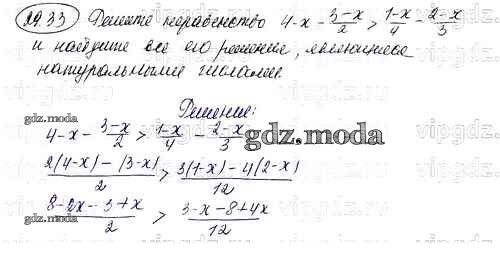 29.33 Решите неравенство 4-x - (3-x)/2 > (1-x)/4 - (2-x)/3
и найдите все его решения, являющиеся
натуральными числами.
Решение:
gdz.moda
4-x - (3-x)/2 > (1-x)/4 - (2-x)/3
gdz.moda
(2(4-x) - (3-x))/2 > (3(1-x) - 4(2-x))/12
(8-2x-3+x)/2 > (3-x-8+4x)/12
gdz.moda